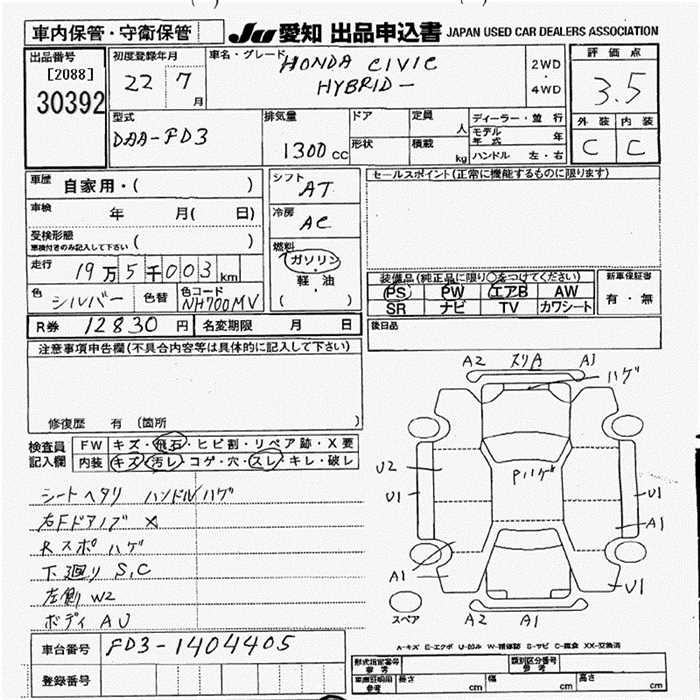 車内保管・守衛保管 JU 愛知 出品申込書 JAPAN USED CAR DEALERS ASSOCIATION
出品番号 [2088] 30392
初度登録年月 22 7月
車名・グレード HONDA CIVIC HYBRID
2WD・4WD
評価点 3.5
型式 DAA-FD3
排気量 1300cc
ドア 定員 人
形状 積載 kg
ディーラー・並行
モデル年式 年
ハンドル 左・右
外装 内装
C C
車歴 自家用・( )
シフト AT
セールスポイント(正常に機能するものに限ります)
車検 年 月( 日)
冷房 AC
受検形態 車検付きのみ記入して下さい ( )
燃料 ガソリン・軽油 ( )
走行 19万5千003km
装備品(純正品に限り○をつけてください)
新車保証書
PS PW エアB AW 有・無
SR ナビ TV カワシート
色 シルバー 色替 色コード NH700MV
R券 12830円 名変期限 月 日
後日品
注意事項申告欄(不具合内容等は具体的に記入して下さい)
修復歴 有 (箇所 )
検査員記入欄
FW キズ・飛石・ヒビ割・リペア跡・X要
内装 キズ・汚レ・コゲ・穴・スレ・キレ・破レ
シートヘタリ ハンドルハゲ
右Fドアノブ X
Rスポ ハゲ
下廻り S,C
左側 W2
ボディ AU
A2 スリA A1
ハゲ
Pハゲ
U2
U1 U1
A1
A1 U1
スペア A2 A1
車台番号 FD3-1404405
登録番号
A-キズ E-エクボ U-凹み W-補修跡 S-サビ C-腐食 XX-交換済
形式指定番号 参考 類別区分番号 参考
車庫証明用 参考 長さ cm 幅 cm 高さ cm